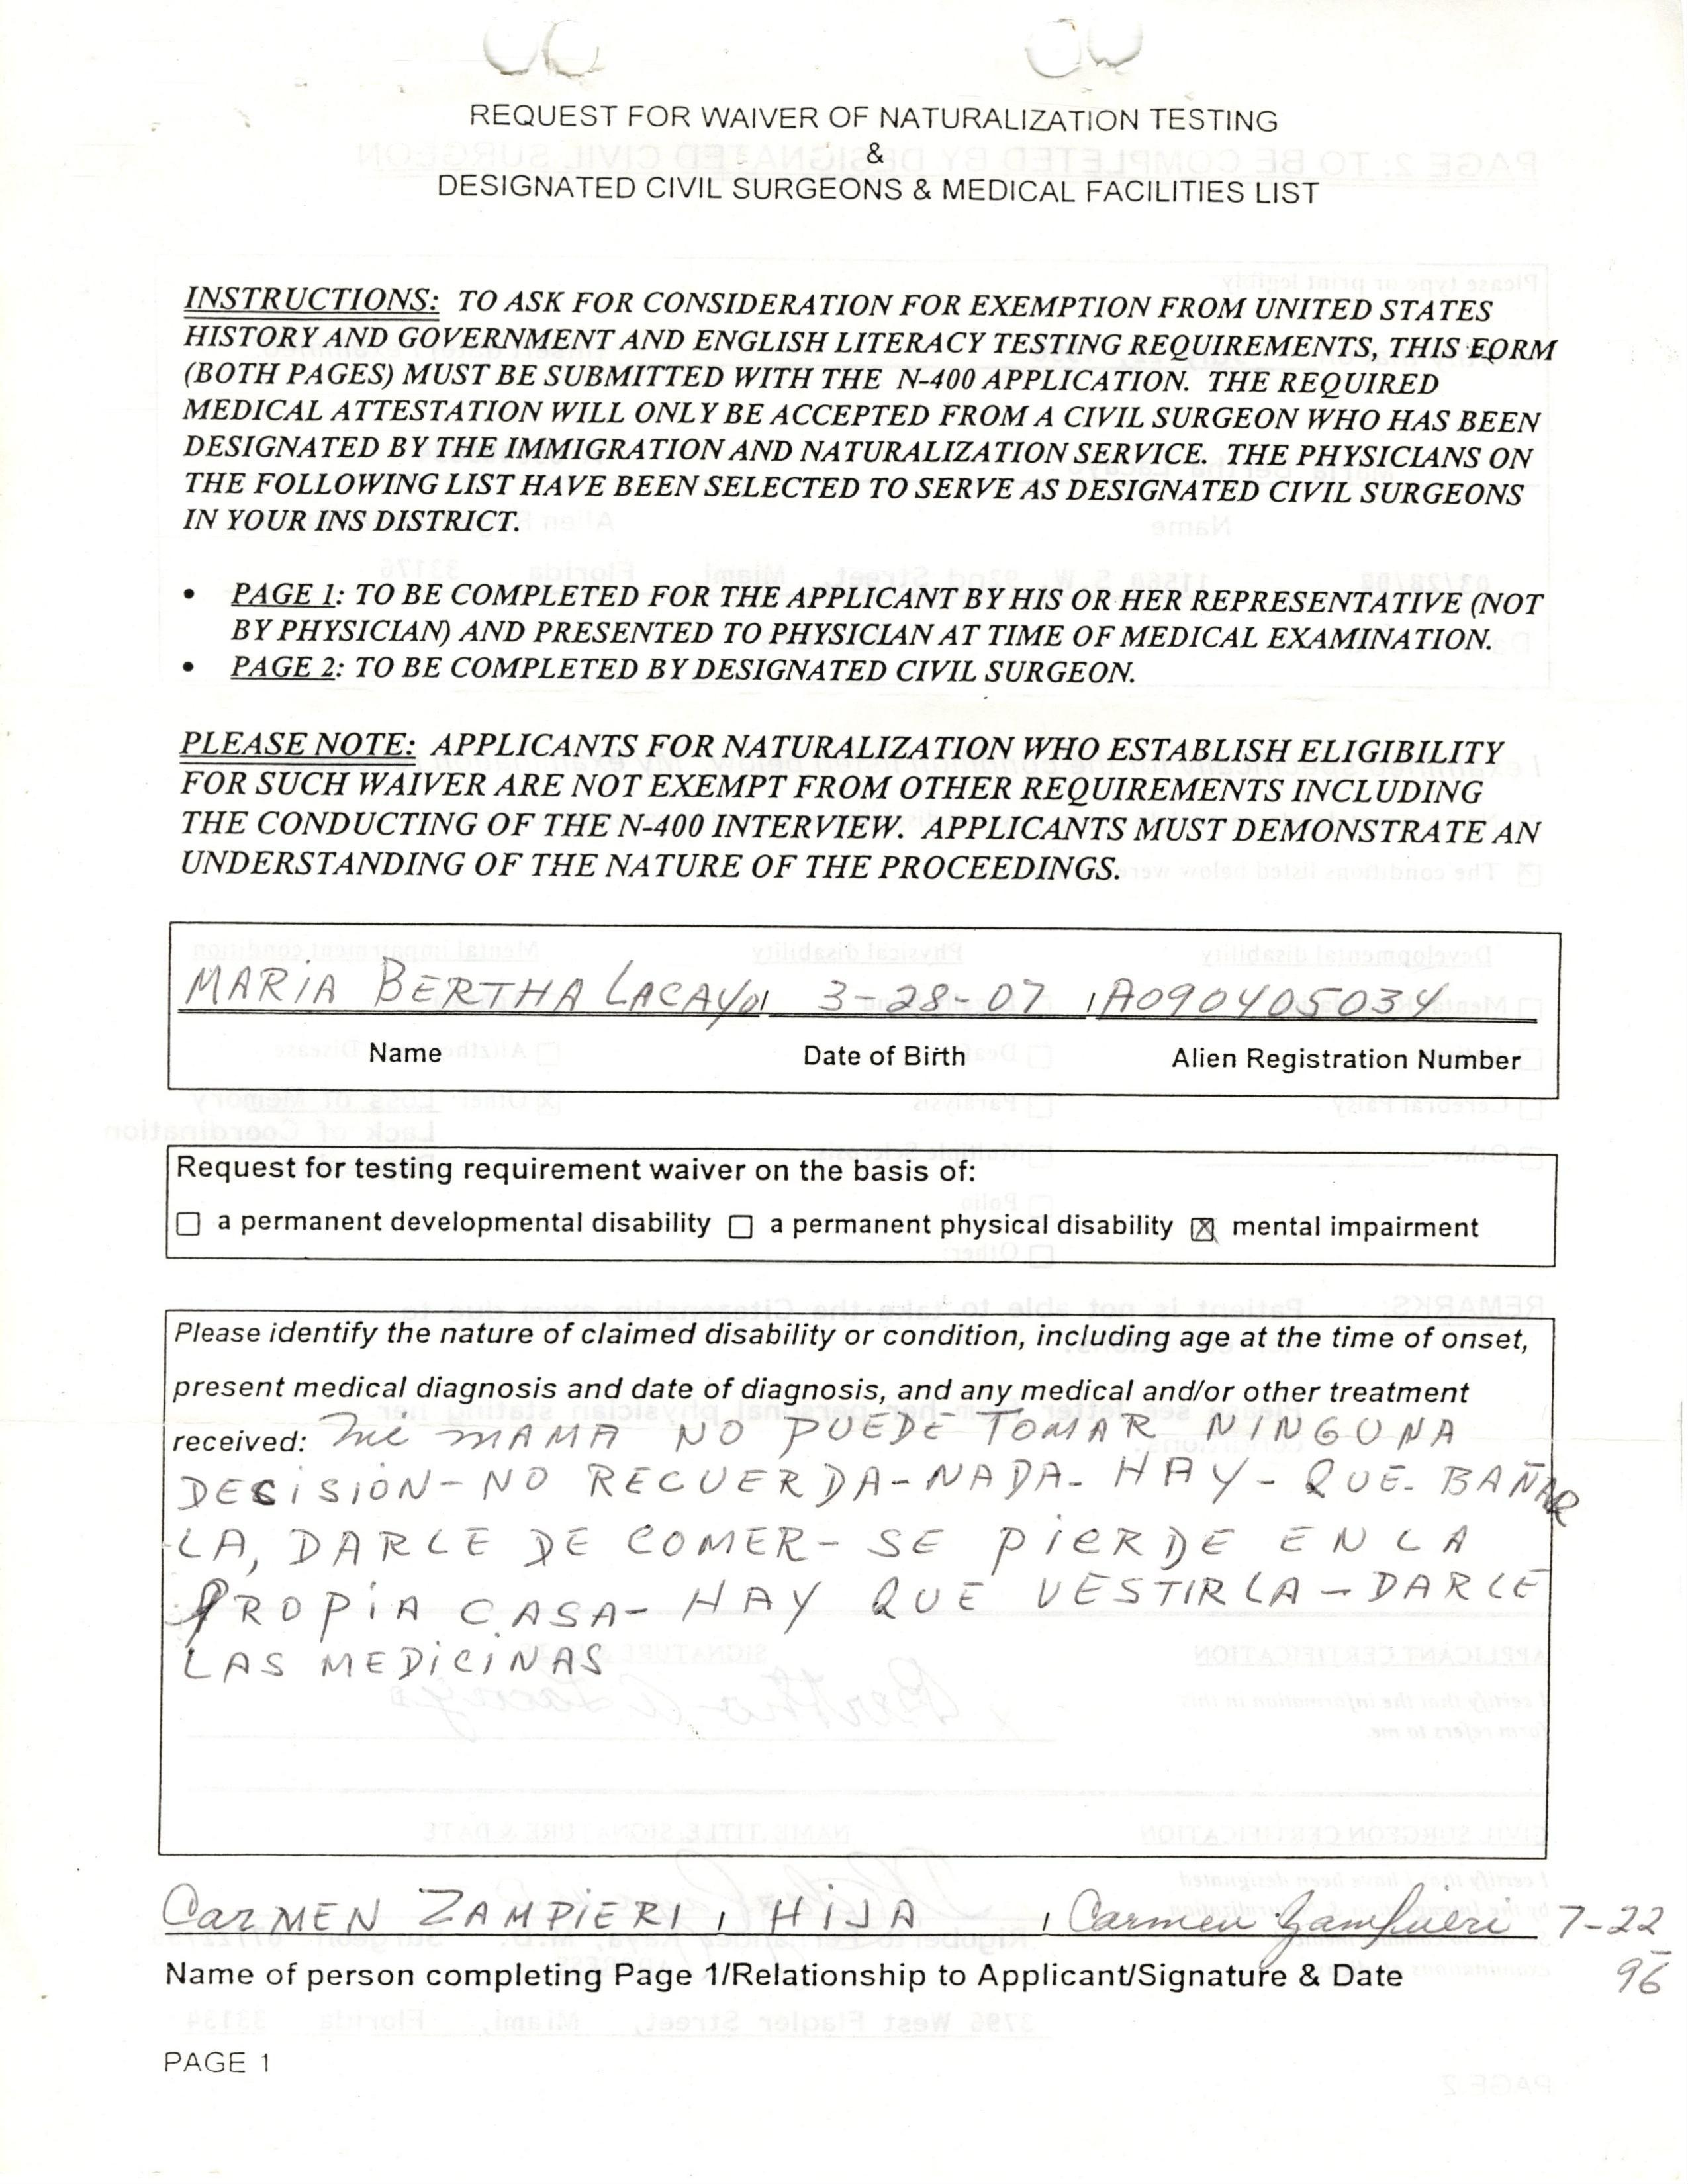 REQUEST FOR WAIVER OF NATURALIZATION TESTING
&
DESIGNATED CIVIL SURGEONS & MEDICAL FACILITIES LIST
INSTRUCTIONS: TO ASK FOR CONSIDERATION FOR EXEMPTION FROM UNITED STATES
HISTORY AND GOVERNMENT AND ENGLISH LITERACY TESTING REQUIREMENTS, THIS FORM
(BOTH PAGES) MUST BE SUBMITTED WITH THE N-400 APPLICATION. THE REQUIRED
MEDICAL ATTESTATION WILL ONLY BE ACCEPTED FROM A CIVIL SURGEON WHO HAS BEEN
DESIGNATED BY THE IMMIGRATION AND NATURALIZATION SERVICE. THE PHYSICIANS ON
THE FOLLOWING LIST HAVE BEEN SELECTED TO SERVE AS DESIGNATED CIVIL SURGEONS
IN YOUR INS DISTRICT.
• PAGE 1: TO BE COMPLETED FOR THE APPLICANT BY HIS OR HER REPRESENTATIVE (NOT
BY PHYSICIAN) AND PRESENTED TO PHYSICIAN AT TIME OF MEDICAL EXAMINATION.
• PAGE 2: TO BE COMPLETED BY DESIGNATED CIVIL SURGEON.
PLEASE NOTE: APPLICANTS FOR NATURALIZATION WHO ESTABLISH ELIGIBILITY
FOR SUCH WAIVER ARE NOT EXEMPT FROM OTHER REQUIREMENTS INCLUDING
THE CONDUCTING OF THE N-400 INTERVIEW. APPLICANTS MUST DEMONSTRATE AN
UNDERSTANDING OF THE NATURE OF THE PROCEEDINGS.
MARIA BERTHA LACAYO, 3-28-07, A090405034
Name Date of Birth Alien Registration Number
Request for testing requirement waiver on the basis of:
☐ a permanent developmental disability ☐ a permanent physical disability ☒ mental impairment
Please identify the nature of claimed disability or condition, including age at the time of onset,
present medical diagnosis and date of diagnosis, and any medical and/or other treatment
received: Mi MAMA NO PUEDE TOMAR NINGUNA
DECISION-NO RECUERDA-NADA- HAY-QUE-BAÑAR
LA, DARLE DE COMER- SE PIERDE EN LA
PROPIA CASA- HAY QUE VESTIRLA-DARLE
LAS MEDICINAS
CARMEN ZAMPIERI, HIJA, Carmen Zampieri 7-22
96
Name of person completing Page 1/Relationship to Applicant/Signature & Date
PAGE 1